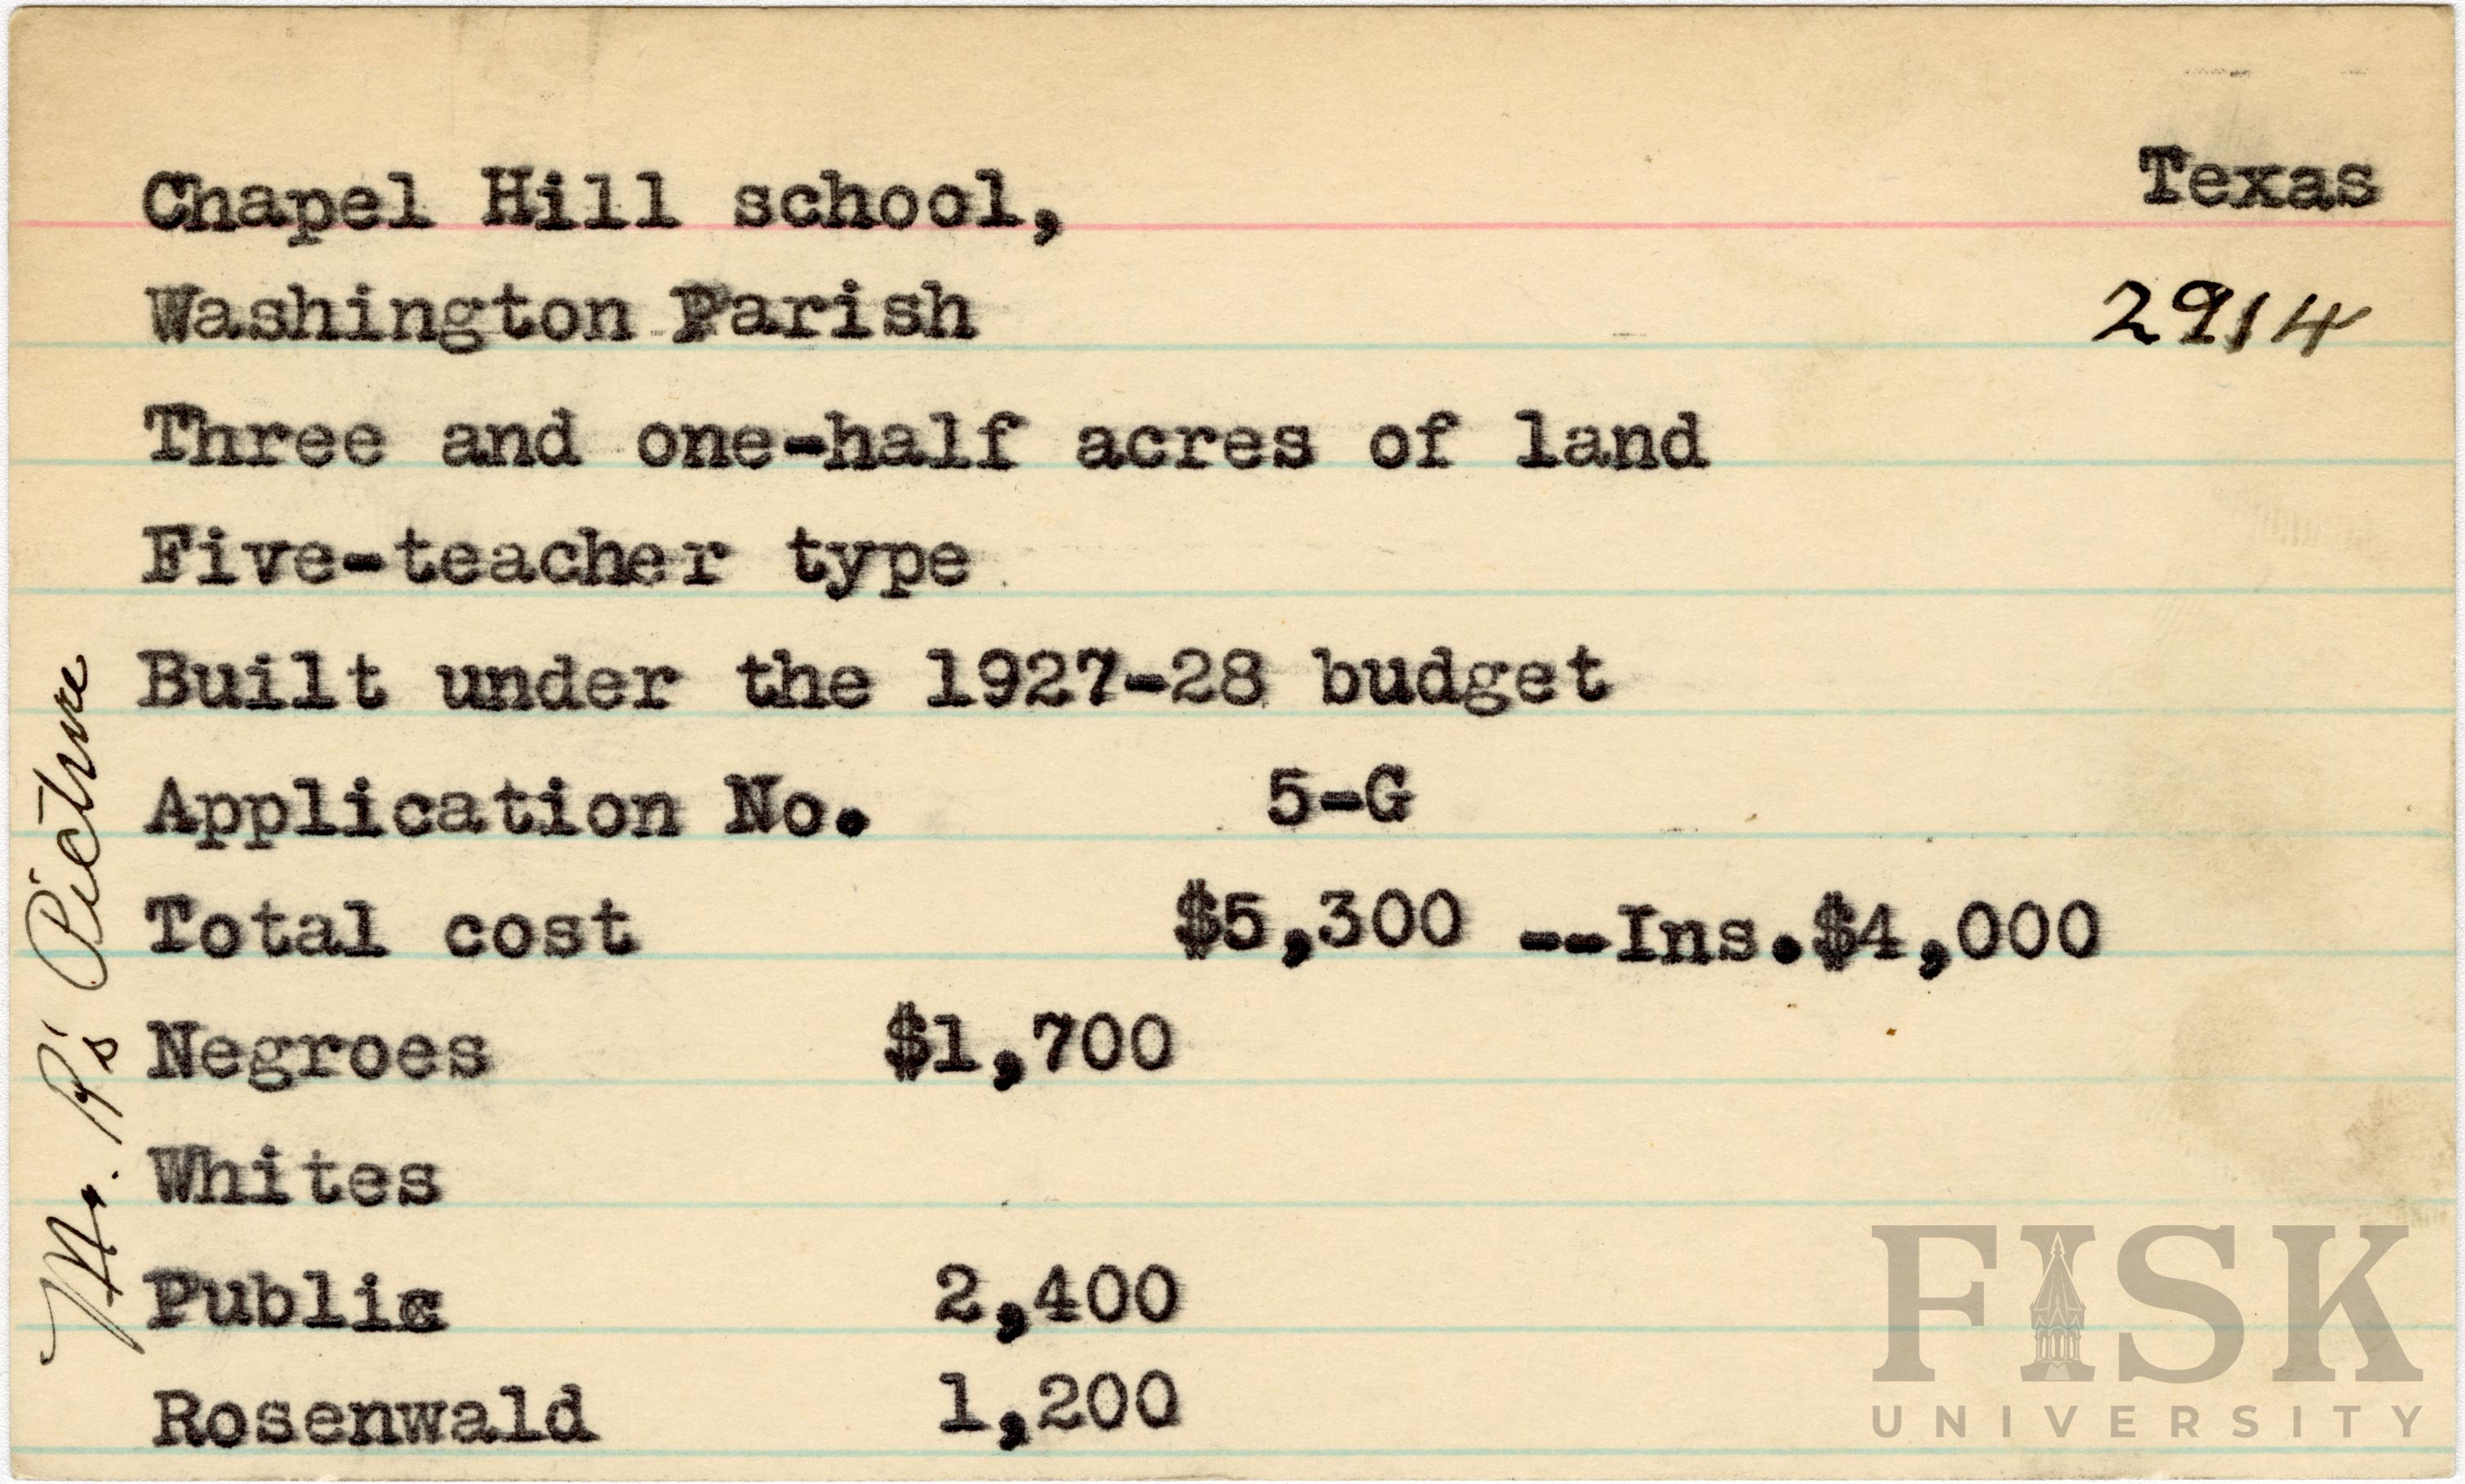 Chapel Hill school, Texas
Washington Parish 2914
Three and one-half acres of land
Five-teacher type
Built under the 1927-28 budget
Application No. 5-G
Total cost $5,300 --Ins.$4,000
Negroes $1,700
Whites
Public 2,400
Rosenwald 1,200
Mr. R's Picture
FISK
UNIVERSITY